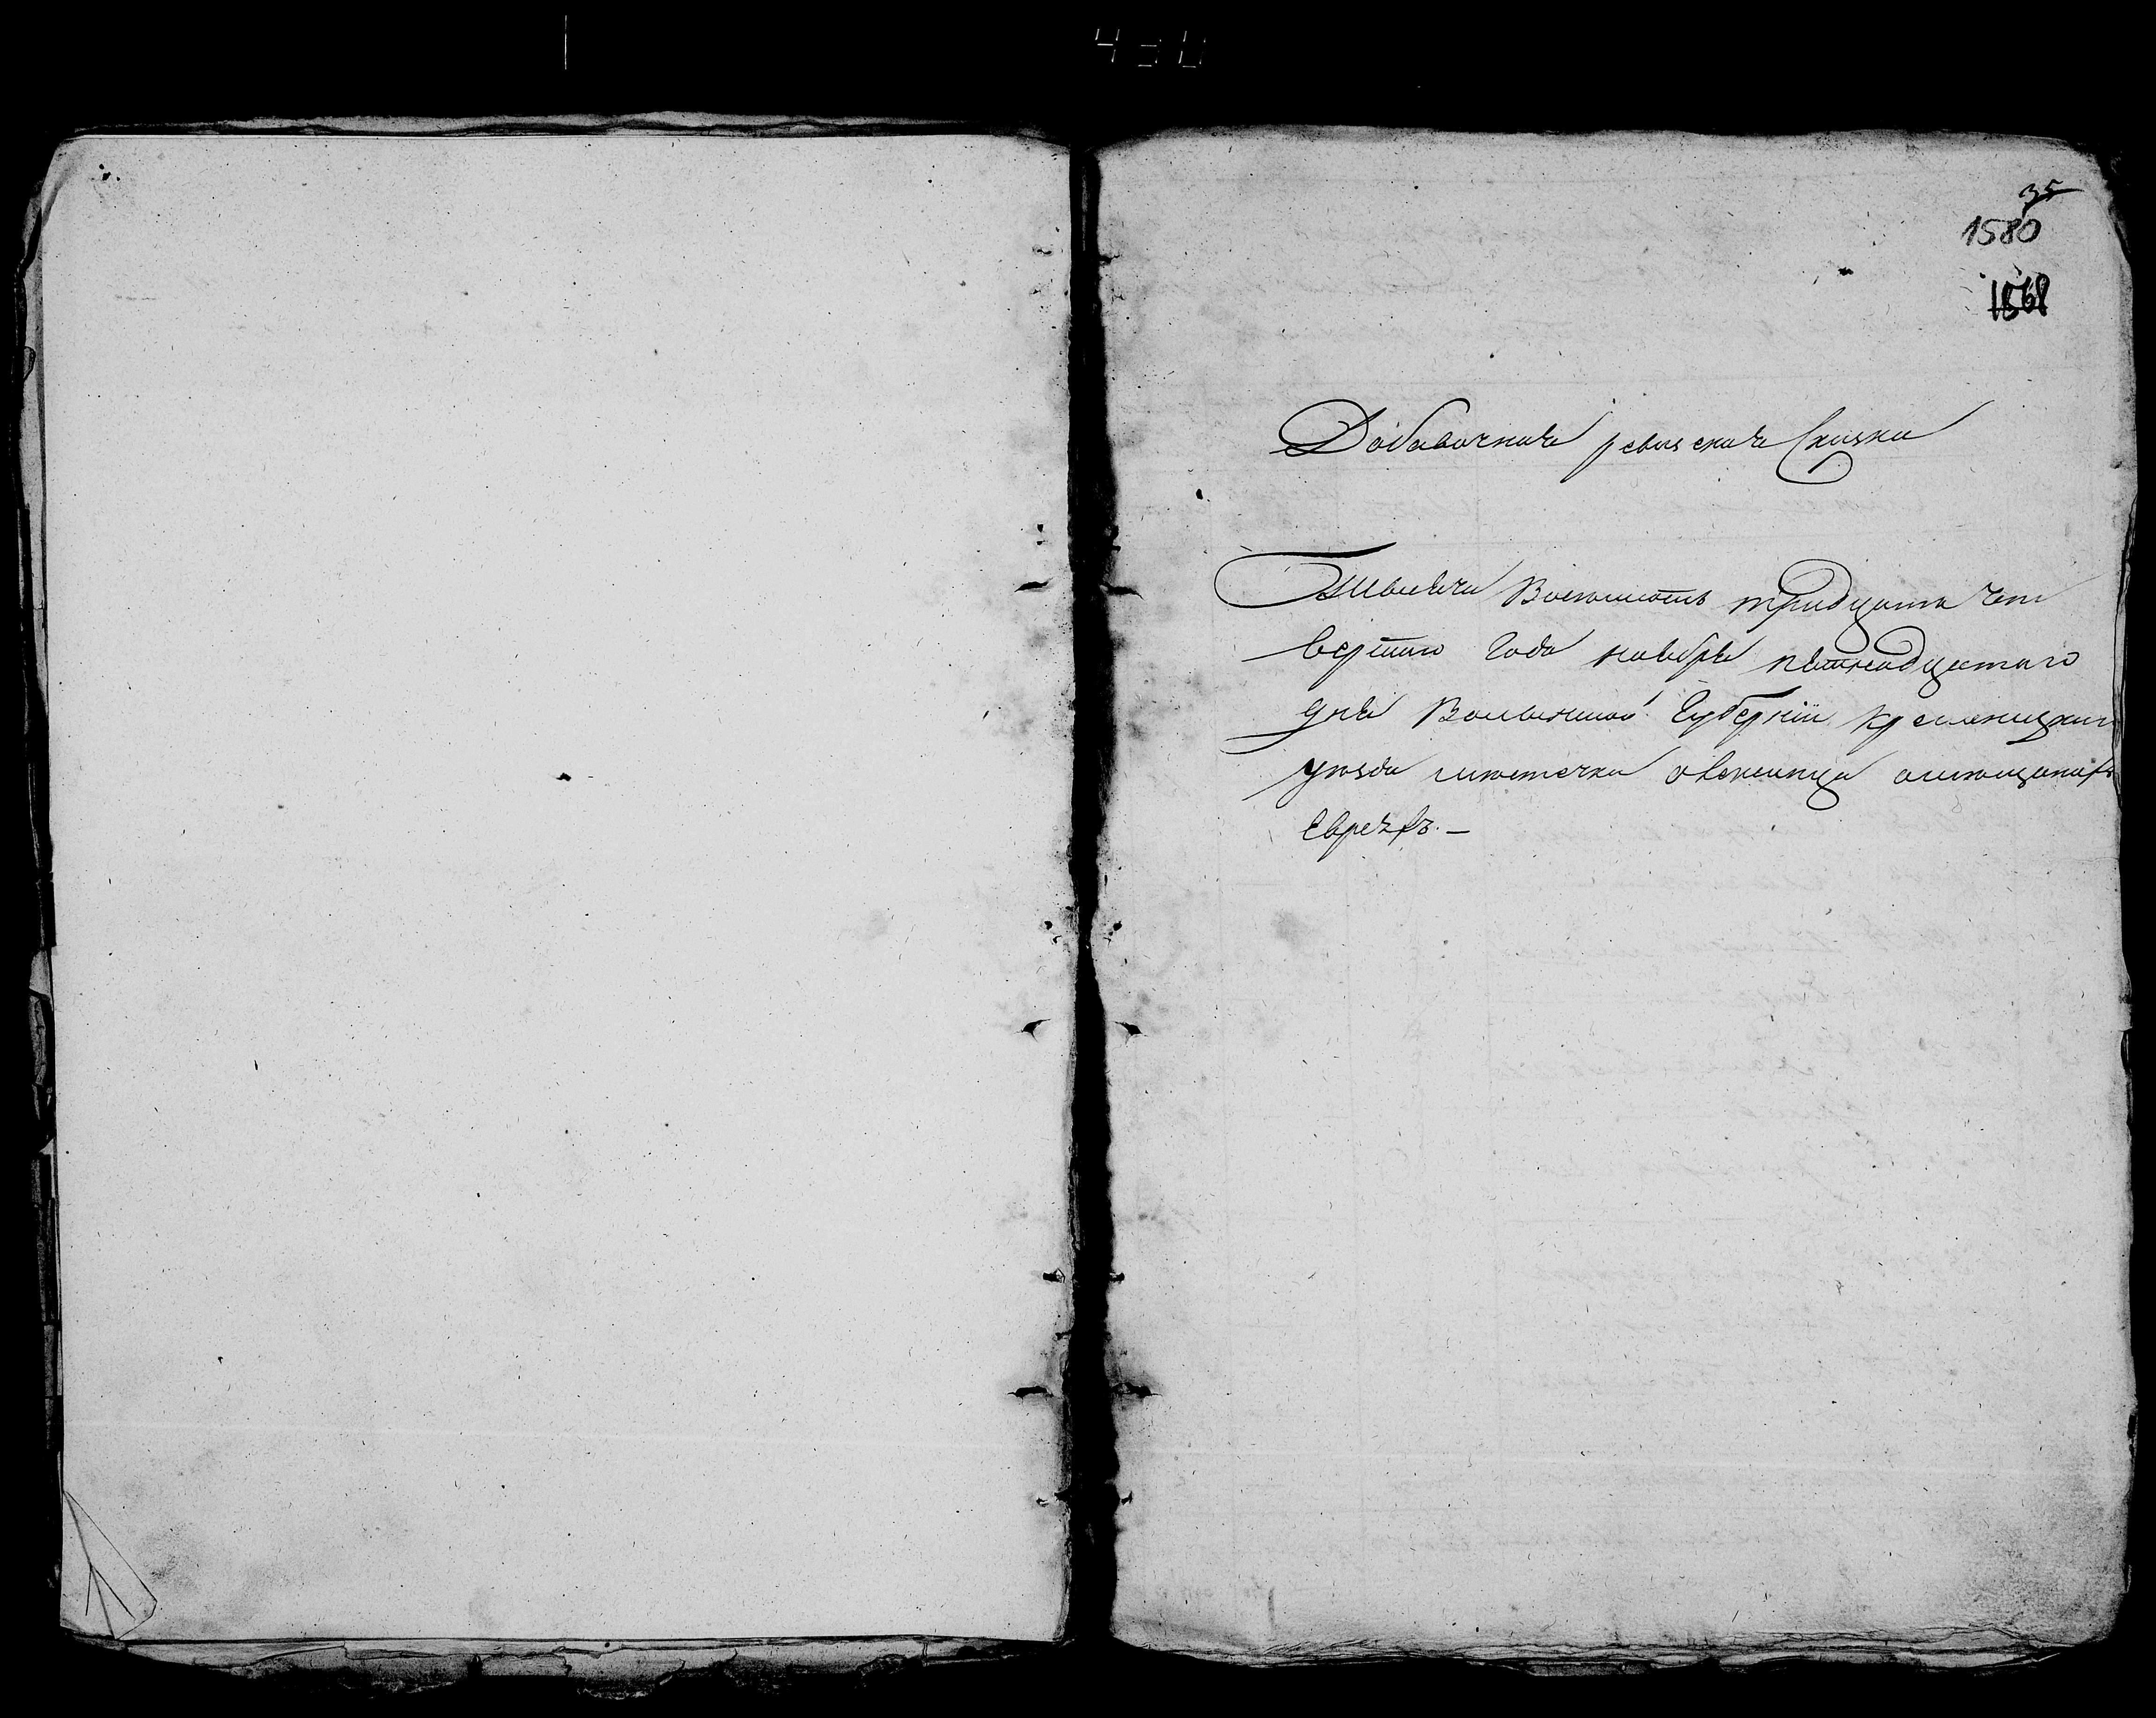 35
1580
1568
Добавочная ревизская Сказка
Тысяча Восемьсотъ тридцать чет
вертаго Года ноября пятнадцатаго
дня Волынской Губерніи Кременецкаго
уезда местечка
Евреяхъ. —